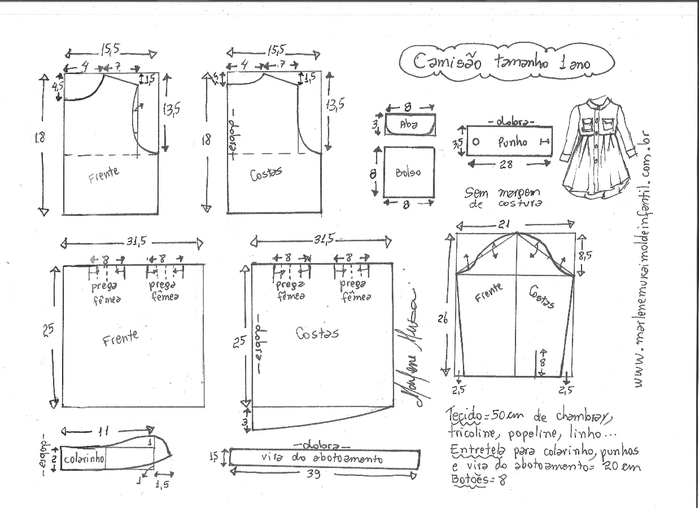 Camisão tamanho 1 ano
15,5
4
7
4,5
1,5
18
13,5
Frente
15,5
4
7
1,5
18
13,5
-dobra-
Costas
8
3
Aba
8
Bolso
8
-dobra-
3,5
Punho
28
Sem margem
de costura
www.marlenemukaimoldeinfantil.com.br
31,5
8
8
prega
fêmea
prega
fêmea
25
Frente
31,5
8
8
prega
fêmea
prega
fêmea
25
-dobra-
Costas
3
Marlene Mukai
21
8,5
Frente
Costas
26
8
2,5
2,5
11
-dobra-
2
colarinho
1
1
1,5
-dobra-
1,5
vira do abotoamento
39
Tecido=50cm de chambray,
tricoline, popeline, linho...
Entretela para colarinho, punhos
e vira do abotoamento= 20 cm
Botões= 8